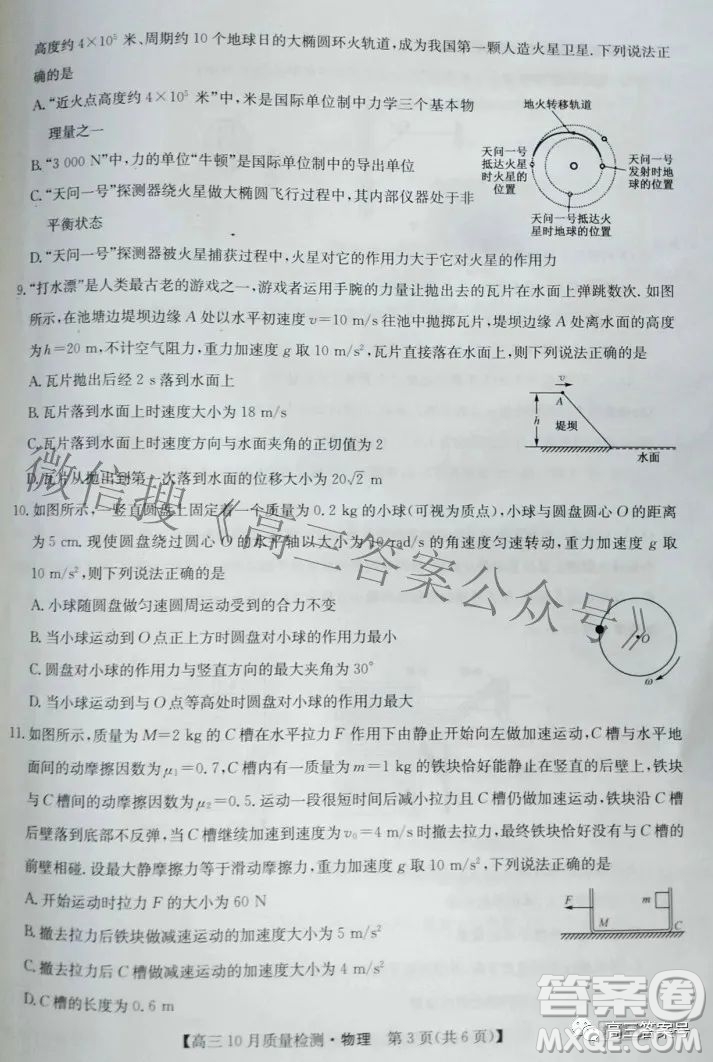 高度约 4×10⁵ 米、周期约 10 个地球日的大椭圆环火轨道，成为我国第一颗人造火星卫星. 下列说法正
确的是
A.“近火点高度约 4×10⁵ 米”中，米是国际单位制中力学三个基本物
理量之一
B.“3 000 N”中，力的单位“牛顿”是国际单位制中的导出单位
C.“天问一号”探测器绕火星做大椭圆飞行过程中，其内部仪器处于非
平衡状态
D.“天问一号”探测器被火星捕获过程中，火星对它的作用力大于它对火星的作用力
地火转移轨道
天问一号
抵达火星
时火星
的位置
天问一号
发射时地
球的位置
天问一号抵达火
星时地球的位置
9.“打水漂”是人类最古老的游戏之一，游戏者运用手腕的力量让抛出去的瓦片在水面上弹跳数次. 如图
所示，在池塘边堤坝边缘 A 处以水平初速度 v=10 m/s 往池中抛掷瓦片，堤坝边缘 A 处离水面的高度
为 h=20 m，不计空气阻力，重力加速度 g 取 10 m/s²，瓦片直接落在水面上，则下列说法正确的是
A. 瓦片抛出后经 2 s 落到水面上
B. 瓦片落到水面上时速度大小为 18 m/s
C. 瓦片落到水面上时速度方向与水面夹角的正切值为 2
D. 瓦片从抛出到第一次落到水面的位移大小为 20√2 m
v
A
h
堤坝
水面
10. 如图所示，一竖直圆盘上固定着一个质量为 0.2 kg 的小球(可视为质点)，小球与圆盘圆心 O 的距离
为 5 cm. 现使圆盘绕过圆心 O 的水平轴以大小为 10 rad/s 的角速度匀速转动，重力加速度 g 取
10 m/s²，则下列说法正确的是
A. 小球随圆盘做匀速圆周运动受到的合力不变
B. 当小球运动到 O 点正上方时圆盘对小球的作用力最小
C. 圆盘对小球的作用力与竖直方向的最大夹角为 30°
D. 当小球运动到与 O 点等高处时圆盘对小球的作用力最大
O
ω
11. 如图所示，质量为 M=2 kg 的 C 槽在水平拉力 F 作用下由静止开始向左做加速运动，C 槽与水平地
面间的动摩擦因数为 μ₁=0.7，C 槽内一质量为 m=1 kg 的铁块恰好能静止在竖直的后壁上，铁块
与 C 槽间的动摩擦因数为 μ₂=0.5. 运动一段很短时间后减小拉力且 C 槽仍做加速运动，铁块沿 C 槽
后壁落到底部不反弹，当 C 槽继续加速到速度为 v₀=4 m/s 时撤去拉力，最终铁块恰好没有与 C 槽的
前壁相碰. 设最大静摩擦力等于滑动摩擦力，重力加速度 g 取 10 m/s²，下列说法正确的是
A. 开始运动时拉力 F 的大小为 60 N
B. 撤去拉力后铁块做减速运动的加速度大小为 5 m/s²
C. 撤去拉力后 C 槽做减速运动的加速度大小为 4 m/s²
D. C 槽的长度为 0.6 m
F
m
M
C
【高三 10 月质量检测·物理 第 3 页(共 6 页)】
微信搜《高三答案公众号》
答案圈
MXQE.COM
高三答案号